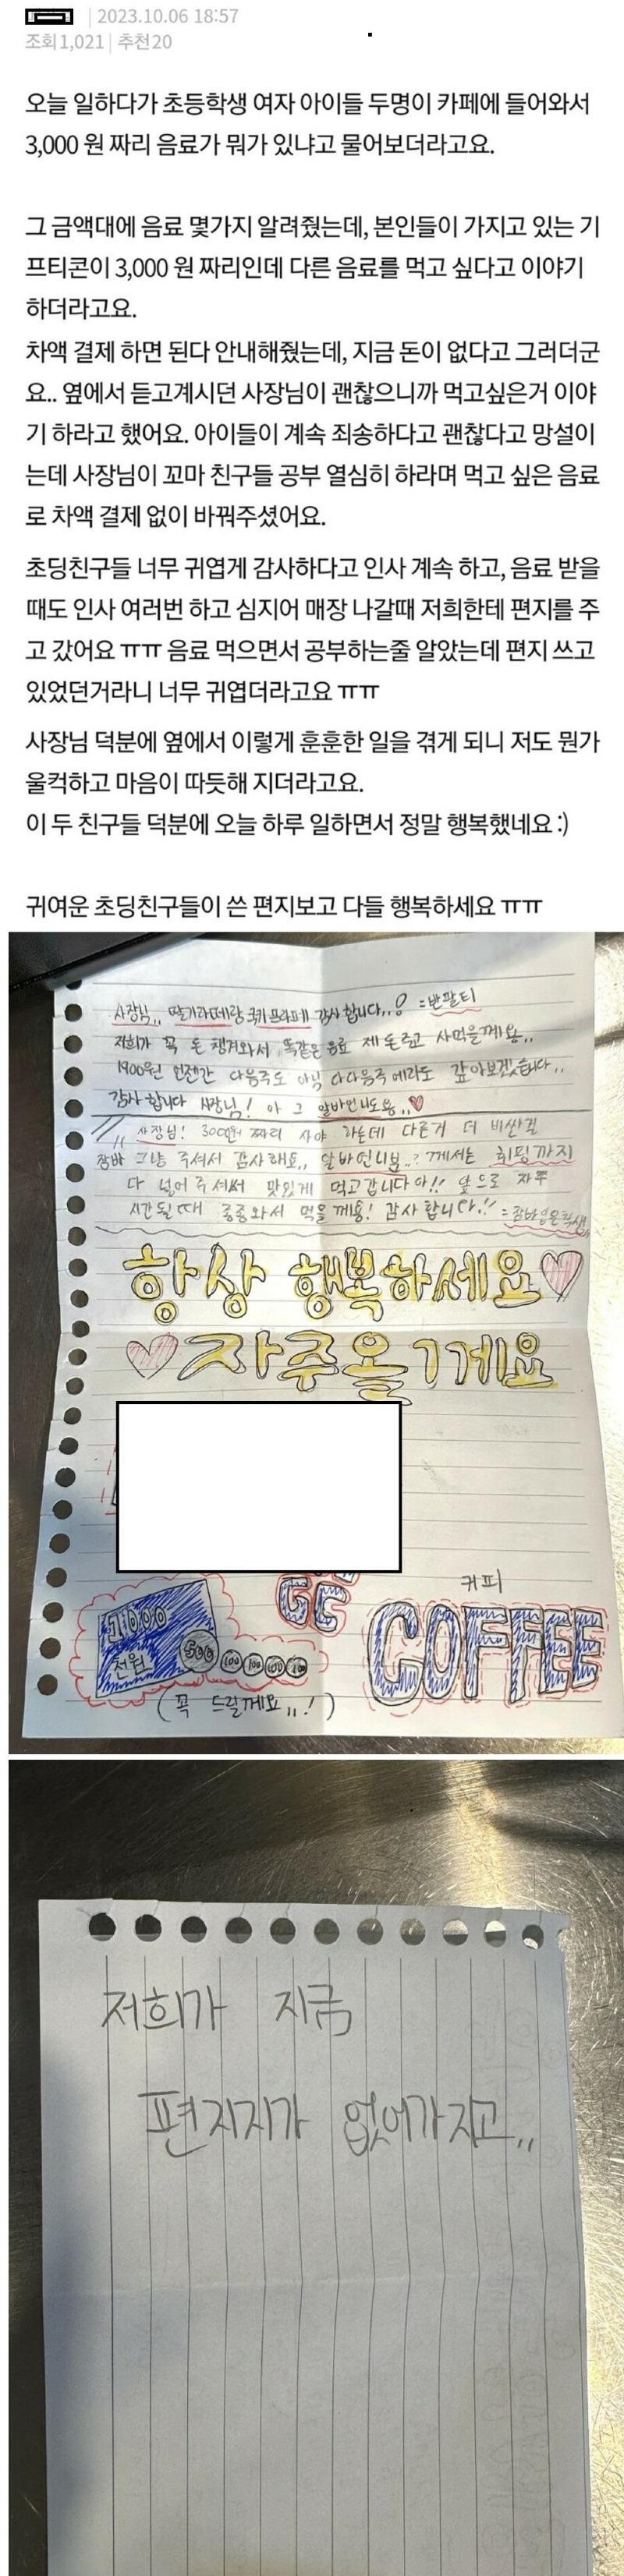 2023.10.06 18:57
조회 1,021 | 추천 20
오늘 일하다가 초등학생 여자 아이들 두명이 카페에 들어와서
3,000 원 짜리 음료가 뭐가 있냐고 물어보더라고요.
그 금액대에 음료 몇가지 알려줬는데, 본인들이 가지고 있는 기
프티콘이 3,000 원 짜리인데 다른 음료를 먹고 싶다고 이야기
하더라고요.
차액 결제 하면 된다 안내해줬는데, 지금 돈이 없다고 그러더군
요.. 옆에서 듣고계시던 사장님이 괜찮으니까 먹고싶은거 이야
기 하라고 했어요. 아이들이 계속 죄송하다고 괜찮다고 망설이
는데 사장님이 꼬마 친구들 공부 열심히 하라며 먹고 싶은 음료
로 차액 결제 없이 바꿔주셨어요.
초딩친구들 너무 귀엽게 감사하다고 인사 계속 하고, 음료 받을
때도 인사 여러번 하고 심지어 매장 나갈때 저희한테 편지를 주
고 갔어요 ㅠㅠ 음료 먹으면서 공부하는줄 알았는데 편지 쓰고
있었던거라니 너무 귀엽더라고요 ㅠㅠ
사장님 덕분에 옆에서 이렇게 훈훈한 일을 겪게 되니 저도 뭔가
울컥하고 마음이 따듯해 지더라고요.
이 두 친구들 덕분에 오늘 하루 일하면서 정말 행복했네요 :)
귀여운 초딩친구들이 쓴 편지보고 다들 행복하세요 ㅠㅠ
사장님,, 딸기라떼랑 쿠키프라페 감사합니다,,! =반팔티
저희가 꼭 돈 챙겨와서 똑같은 음료 제 돈주고 사먹을께용,,
1900원 언젠간 다음주도 아님 다다음주에라도 갚아보겠습니다,,
감사합니다 사장님! 아 그 알바언니도용,,♥
사장님! 3000원 짜리 사야 하는데 다른거 더 비싼걸
그냥 주셔서 감사해요,, 알바언니분..? 께서는 휘핑까지
다 넣어주셔써 맛있게 먹고갑니다아!! 앞으로 자주
시간될때 종종와서 먹을께용! 감사합니다!!
항상 행복하세요♡
♡자주올게요
1000
천원
500
100 100 100 100
(꼭 드릴께요,,!)
커피
COFFEE
저희가 지금
편지지가 없어가지고,,